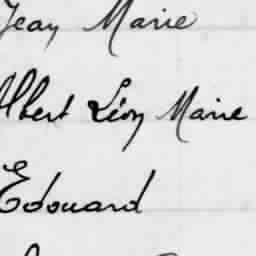 Jean Marie
Albert Léon Marie
Edouard